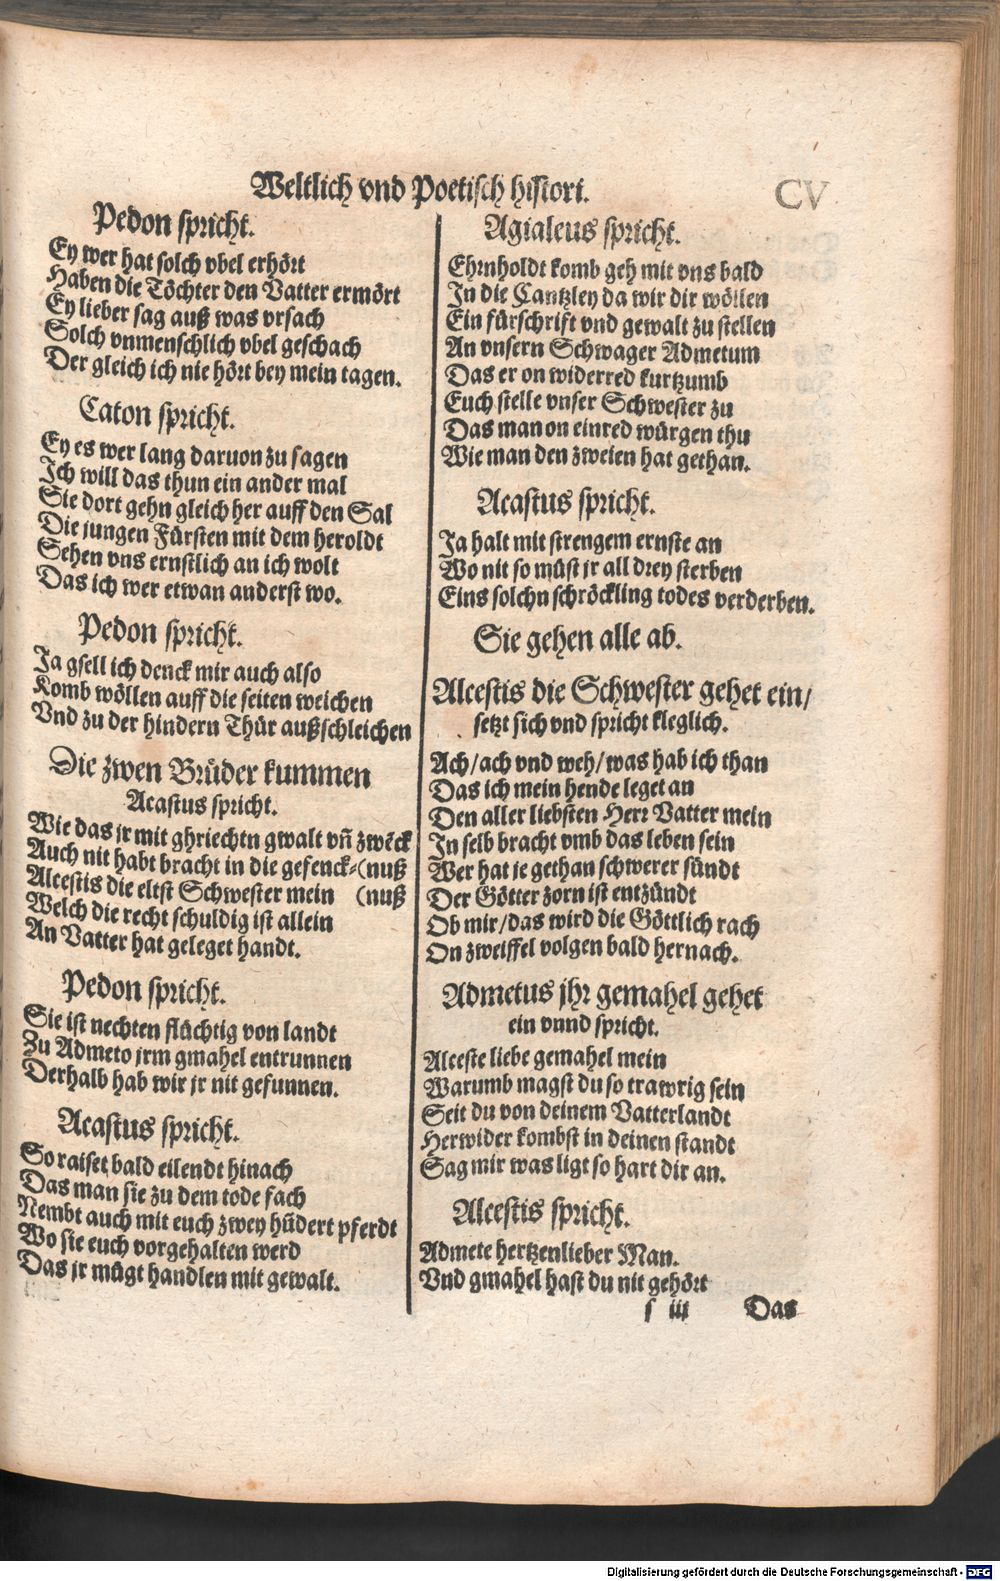 Weltlich vnd Poetisch histori. CV
Pedon spricht.
Ey wer hat solch vbel erhört
Haben die Töchter den Vatter ermört
Ey lieber sag auß was vrsach
Solch vnmenschlich vbel geschach
Der gleich ich nie hört bey mein tagen.
Caton spricht.
Ey es wer lang daruon zu sagen
Ich will das thun ein ander mal
Sie dort gehn gleich her auff den Sal
Die jungen Fürsten mit dem heroldt
Sehen vns ernstlich an ich wolt
Das ich wer etwan anderst wo.
Pedon spricht.
Ja gsell ich denck mir auch also
Komb wöllen auff die seiten weichen
Vnd zu der hindern Thür außschleichen
Die zwen Brüder kummen
Acastus spricht.
Wie das jr mit ghriechtn gwalt vñ zwẽck
Auch nit habt bracht in die gefenck-(nuß
Alcestis die eltst Schwester mein (nuß
Welch die recht schuldig ist allein
An Vatter hat geleget handt.
Pedon spricht.
Sie ist nechten flüchtig von landt
Zu Admeto jrm gmahel entrunnen
Derhalb hab wir jr nit gefunnen.
Acastus spricht.
So raiset bald eilendt hinach
Das man sie zu dem tode fach
Nembt auch mit euch zwey hũdert pferdt
Wo sie euch vorgehalten werd
Das jr mügt handlen mit gewalt.
Agialeus spricht.
Ehrnholdt komb geh mit vns bald
In die Cantzley da wir dir wöllen
Ein fürschrifft vnd gewalt zu stellen
An vnsern Schwager Admetum
Das er on widerred kurtzumb
Euch stelle vnser Schwester zu
Das man on einred würgen thu
Wie man den zweien hat gethan.
Acastus spricht.
Ja halt mit strengem ernste an
Wo nit so müst jr all drey sterben
Eins solchn schröckling todes verderben.
Sie gehen alle ab.
Alcestis die Schwester gehet ein/
setzt sich vnd spricht kleglich.
Ach/ach vnd weh/was hab ich than
Das ich mein hende leget an
Den aller liebsten Herr Vatter mein
In selb bracht vmb das leben sein
Wer hat je gethan schwerer sündt
Der Götter zorn ist entzündt
Ob mir/das wird die Göttlich rach
On zweiffel volgen bald hernach.
Admetus jhr gemahel gehet
ein vnnd spricht.
Alceste liebe gemahel mein
Warumb magst du so trawrig sein
Seit du von deinem Vatterlandt
Herwider kombst in deinen standt
Sag mir was ligt so hart dir an.
Alcestis spricht.
Admete hertzenlieber Man.
Vnd gmahel hast du nit gehört
s iii Das
Digitalisierung gefördert durch die Deutsche Forschungsgemeinschaft - DFG